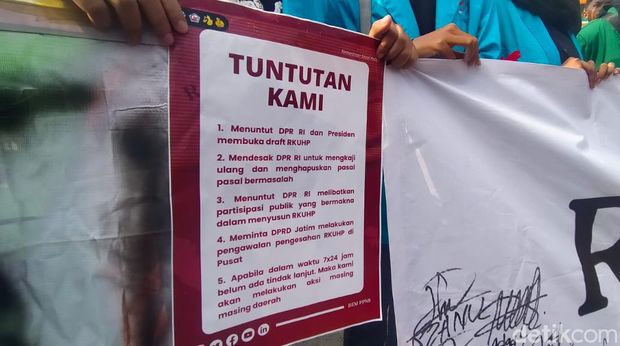 TUNTUTAN
KAMI
1. Menuntut DPR RI dan Presiden
membuka draft RKUHP
2. Mendesak DPR RI untuk mengkaji
ulang dan menghapuskan pasal
pasal bermasalah
3. Menuntut DPR RI melibatkan
partisipasi publik yang bermakna
dalam menyusun RKUHP
4. Meminta DPRD Jatim melakukan
pengawalan pengesahan RKUHP di
Pusat
5. Apabila dalam waktu 7x24 jam
belum ada tindak lanjut. Maka kami
akan melakukan aksi masing
masing daerah
BEM PPNS
R
detikcom